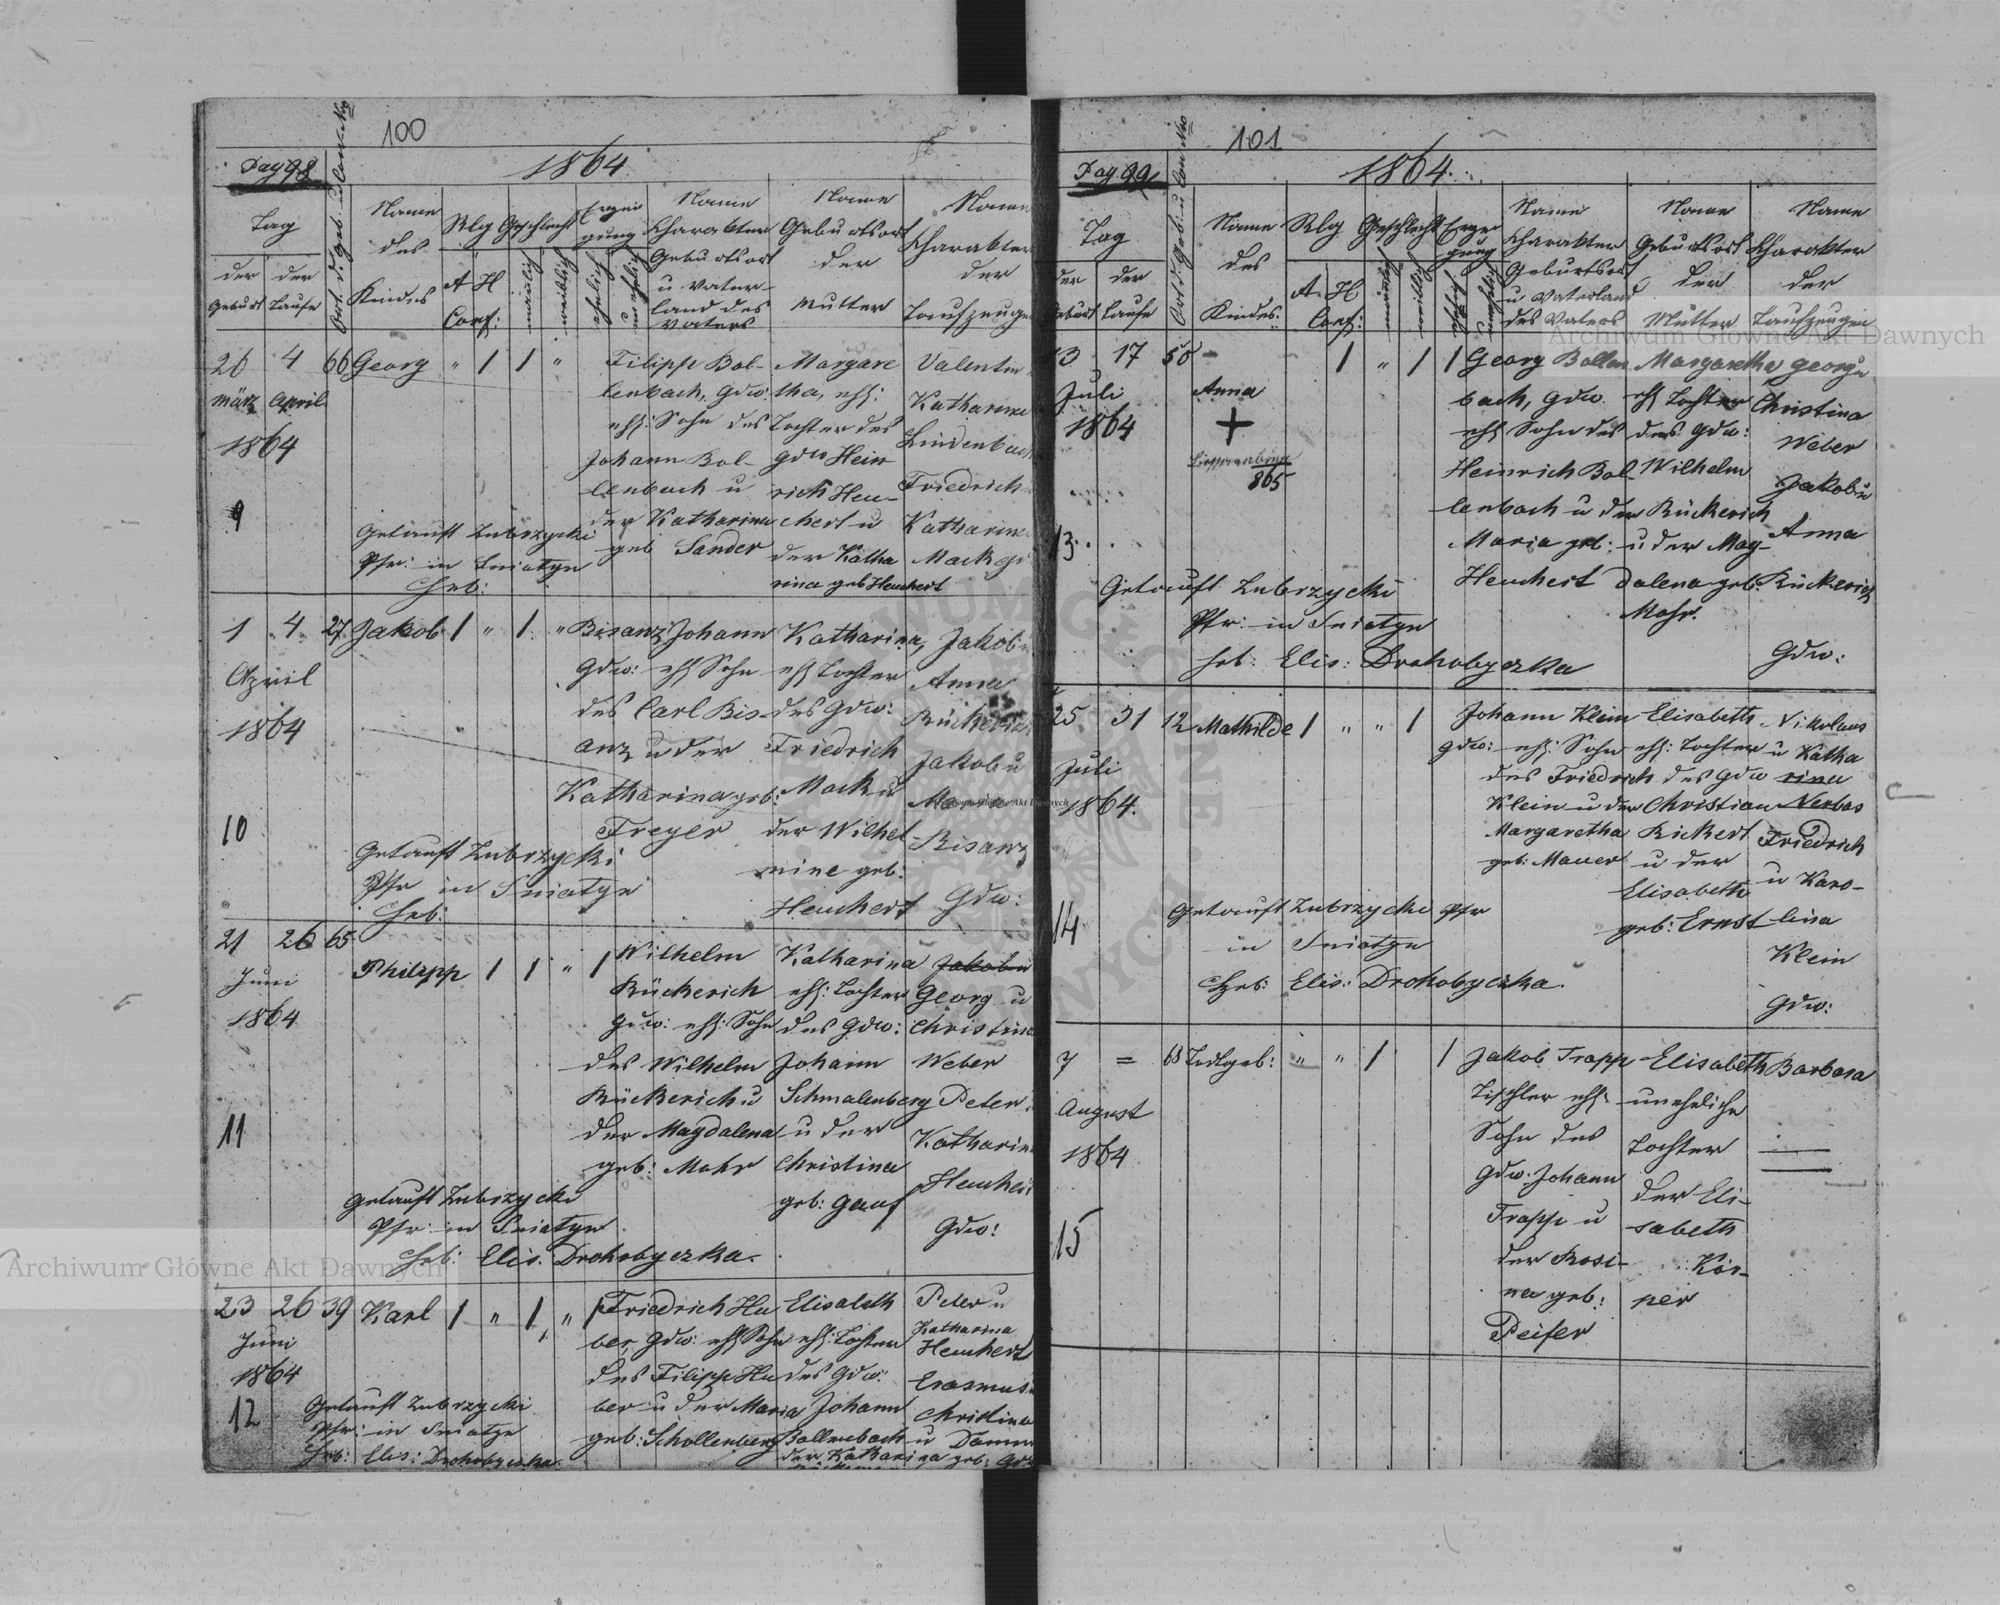 100
Pag 98
1864
Ort d. Geb. u Cons. No
Tag
der Geburt
der Taufe
Name
des
Kindes
Rlg
A H
Conf:
Geschlecht
männlich
weiblich
Erzeu
gung
ehelich
unehelich
Name
Charakter
Geburtsort
u Vater-
land des
Vaters
Name
Geburtsort
der
Mutter
Name
Charakter
der
Taufzeugen
26 4 66 Georg " 1 1 "
März April
1864
9
Filipp Bol-
lenbach, Gdw:
ehl: Sohn des
Johann Bol-
lenbach u
der Katharina
geb Sander
Margare
tha, ehl:
Tochter des
Gdw Hein
rich Heu-
chert u
der Katha
rina geb Heuchert
Valentin
Katharina
Lindenbach
Friedrich
Katharina
Mack
Getauft Zubrzycki
Pfr: in Sniatyn
Heb:
1 4 27 Jakob 1 " 1 "
April
1864
10
Bisanz Johann
Gdw: ehl Sohn
des Carl Bis-
anz u der
Katharina geb:
Freyer
Katharina,
ehl Tochter
des Gdw:
Friedrich
Mack u
der Wilhel
mine geb:
Heuchert
Jakob
Anna
Rückerich
Jakob u
Bisanz
Gdw:
Getauft Zubrzycki
Pfr in Sniatyn
Heb:
21 26 65
Juni
1864
11
Philipp 1 1 " 1
Wilhelm
Rückerich
Gdw: ehl: Sohn
des Wilhelm
Rückerich u
der Magdalena
geb: Mohr
Katharina
ehl: Tochter
des Gdw:
Johann
Schmalenberg
u der
Christina
geb: Gauf
Jakob u
Georg u
Christina
Weber
Peter
Katharina
Heuchert
Gdw:
Getauft Zubrzycki
Pfr: in Sniatyn
Heb: Elis. Drohobyczka.
23 26 39 Karl 1 " 1 " 1
Juni
1864
12
Friedrich Hu
ber, Gdw: ehl Sohn
des Filipp Hu
ber u der Maria
geb: Schollenberg
Elisabeth
ehl: Tochter
des Gdw:
Johann
Bollenbach u
der Katharina geb:
Peter u
Katharina
Heuchert
Erasmus
Christina
Damm
Getauft Zubrzycki
Pfr: in Sniatyn
Heb: Elis: Drohobyczka
101
Pag 99
1864.
Ort d Geb: u Con Nro
Tag
der Geburt
der Taufe
Name
des
Kindes.
Rlg
A. H
Conf:
Geschlecht
männlich
weiblich
Erzeu
gung
ehelich
unehelich
Name
Charakter
Geburtsort
u Vaterland
des Vaters
Name
Geburtsort
der
Mutter
Name
Charakter
der
Taufzeugen
13 17 50 - 1 " 1 1
Juli
1864
Anna
+
865
13.
Georg Bollen
bach, Gdw.
ehl Sohn des
Heinrich Bol-
lenbach u der
Maria geb:
Heuchert
Margaretha
ehl Tochter
des Gdw:
Wilhelm
Rückerich
u der Mag-
dalena geb:
Mohr.
Georg u
Christina
Weber
Jakob u
Anna
Rückerich
Gdw:
Getauft Zubrzycki
Pfr: in Sniatyn
Heb: Elis: Drohobyczka
25 31 12 Mathilde 1 " " 1
Juli
1864.
14
Johann Klein
Gdw: ehl: Sohn
des Friedrich
Klein u der
Margaretha
geb: Mauer
Elisabeth
ehl: Tochter
des Gdw
Christian
Rickert
u der
Elisabeth
geb: Ernst
Nikolaus
u Katha
rina
Nerbas
Friedrich
u Karo-
lina
Klein
Gdw:
Getauft Zubrzycki Pfr
in Sniatyn
Heb: Elis: Drohobyczka.
7 = 68 Todtgeb: " " 1 1
August
1864
15
Jakob Trapp
Tischler ehl:
Sohn des
Gdw. Johann
Trapp u
der Rosi-
na geb:
Peifer
Elisabeth
uneheliche
Tochter
der Eli-
sabeth
Kör-
per
Barbara
Archiwum Główne Akt Dawnych
Archiwum Główne Akt Dawnych
Archiwum Główne Akt Dawnych